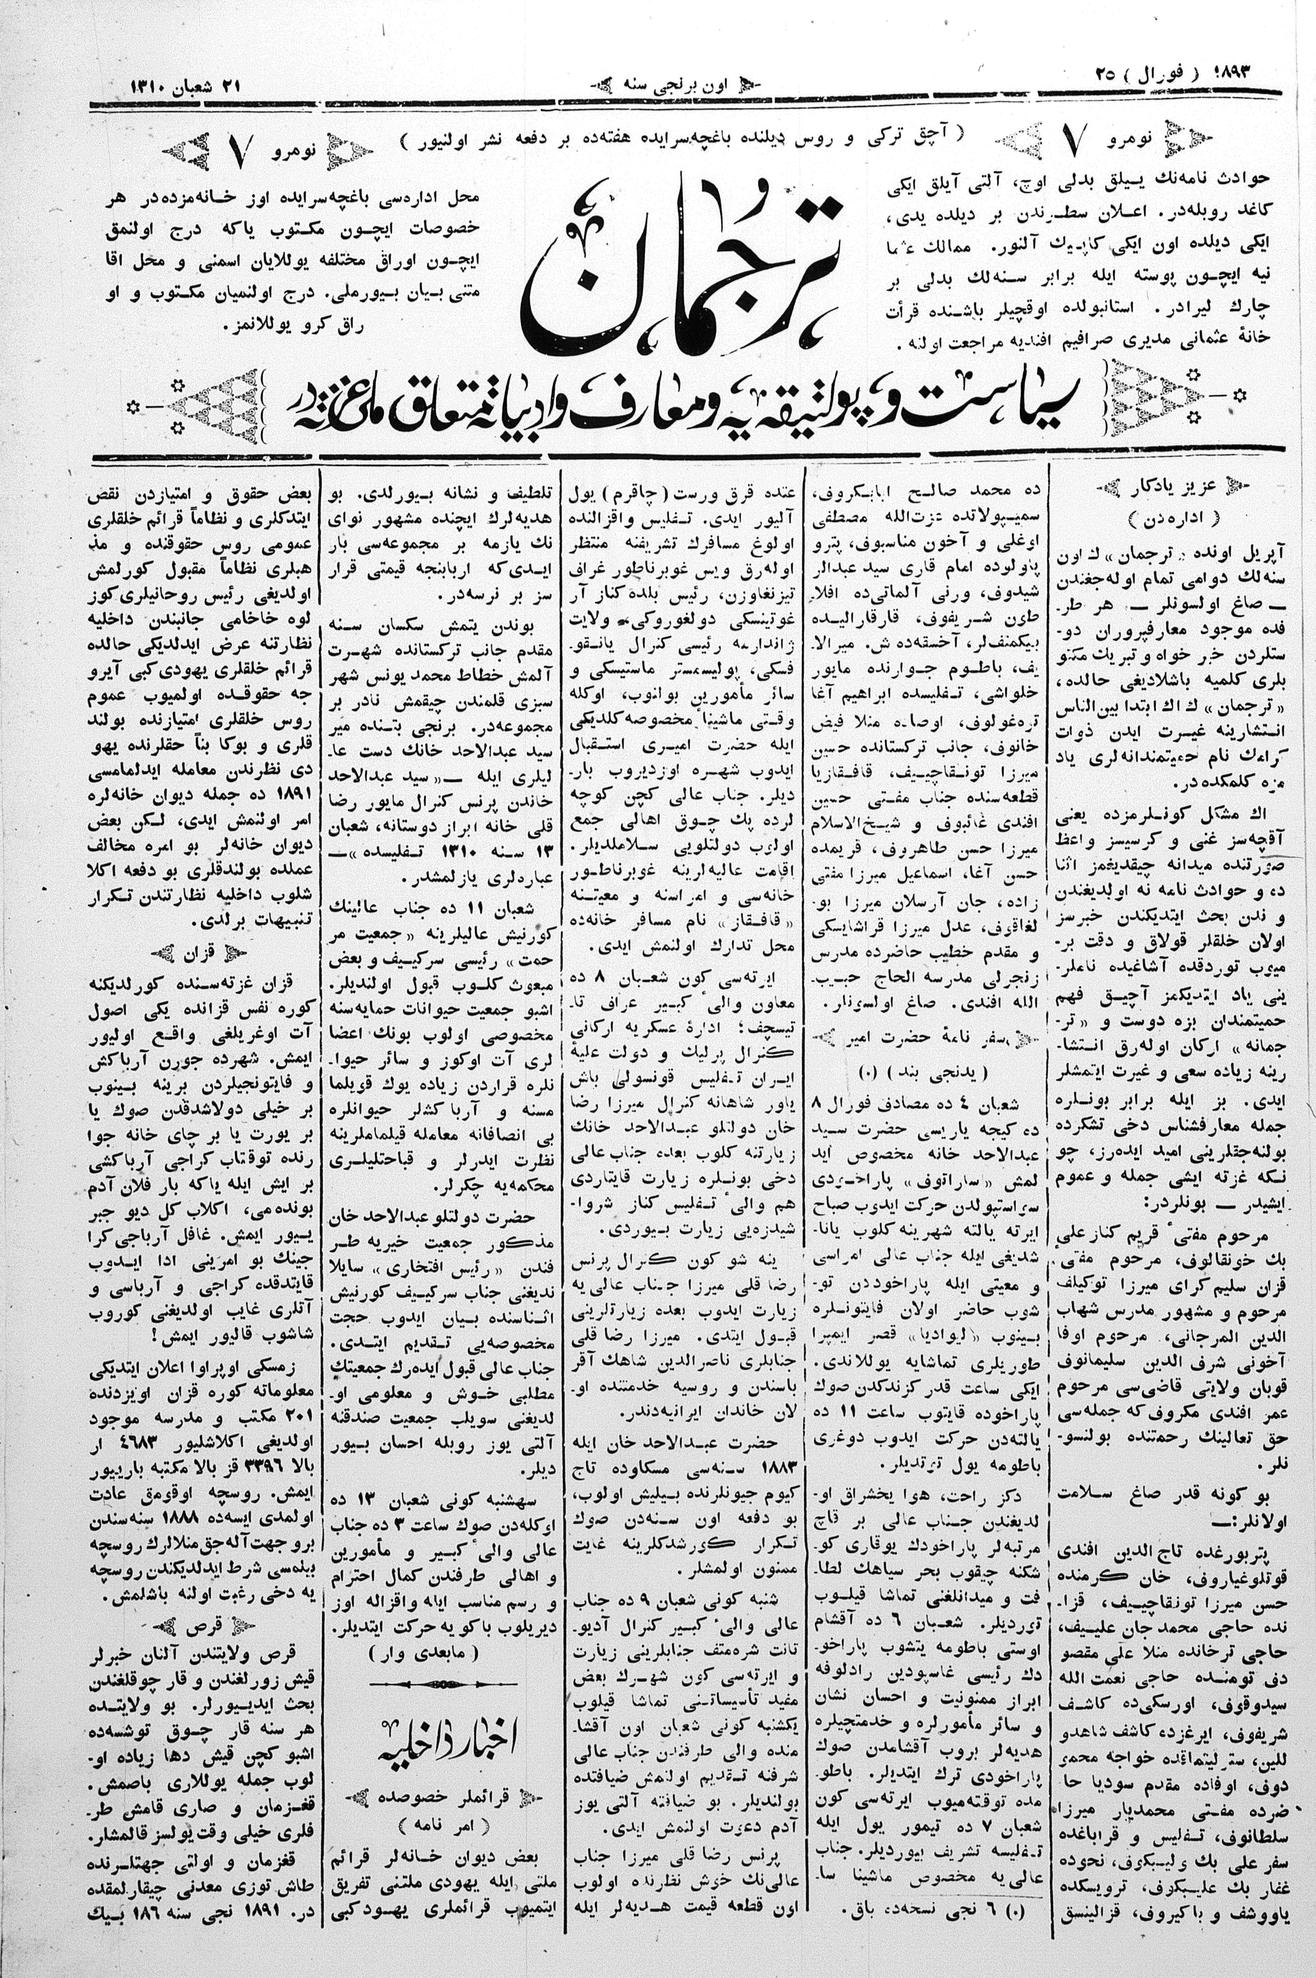 ١٨٩٣ ( فورال ) ٢٥
اون برنجی سنه
٢١ شعبان ١٣١٠
نومرو ٧
( آچق ترکی و روس دیلنده باغچه‌سرایده هفته‌ده بر دفعه نشر اولنیور )
نومرو ٧
حوادث نامه‌نك ییلق بدلی اوچ، آلتی آیلق ایکی
کاغد روبله‌در. اعلان سطرندن بر دیلده یدی،
ایکی دیلده اون ایکی کاپیك آلنور. ممالك عثما
نیه ایچون پوسته ایله برابر سنه‌لك بدلی بر
چارك لیرادر. استانبولده اوقچیلر باشنده قرأت
خانهٔ عثمانی مدیری صرافیم افندیه مراجعت اولنه.
ترجمان
محل اداره‌سی باغچه‌سرایده اوز خانه‌مزده‌در هر
خصوصات ایچون مکتوب یاکه درج اولنمق
ایچون اوراق مختلفه یوللایان اسمنی و محل اقا
متنی بیان بیورملی. درج اولنمیان مکتوب و او
راق کرو یوللانمز.
سیاست و پولتیقه‌یه و معارف و ادبیاته متعلق ملی غزته‌در
عزیز یادکار
( اداره‌دن )
آپریل اونده «ترجمان» ك اون
سنه‌لك دوامی تمام اوله‌جغندن
— صاغ اولسونلر — هر طر-
فده موجود معارفپروران دو-
ستلردن خیر خواه و تبریك مکتو
بلری کلمیه باشلادیغی حالده،
«ترجمان» ك اك ابتدا بین‌الناس
انتشارینه غیرت ایدن ذوات
کرامك نام حمیتمندانه‌لری یاد
مزه کلمکده‌در.
اك مشکل کونلرمزده یعنی
آقچه‌سز غنی و کرسیسز واعظ
صورتنده میدانه چیقدیغمز اثنا
ده، و حوادث نامه نه اولدیغندن
و ندن بحث ایتدیکندن خبرسز
اولان خلقلر قولاق و دقت بر-
میوب توردقده آشاغیده ناملر-
ینی یاد ایتدیکمز آچیق فهم
حمیتمندان بزه دوست و «تر-
جمانه» ارکان اوله‌رق انتشا-
رینه زیاده سعی و غیرت ایتمشلر
ایدی. بز ایله برابر بونلره
جمله معارفشناس دخی تشکرده
بولنه‌جقلرینی امید ایده‌رز، چو
نکه غزته ایشی جمله و عموم
ایشیدر — بونلردر:
مرحوم مفتیٔ قریم کناز علی
بك خونقالوف، مرحوم مفتیٔ
قزان سلیم کرای میرزا توکیلف
مرحوم و مشهور مدرس شهاب
الدین المرجانی، مرحوم اوفا
آخونی شرف الدین سلیمانوف
قوبان ولایتی قاضی‌سی مرحوم
عمر افندی مکروف که جمله‌سی
حق تعالینك رحمتنده بولنسو-
نلر.
بو کونه قدر صاغ سلامت
اولانلر:—
پتربورغده تاج الدین افندی
قوتلوغیاروف، خان کرمنده
حسن میرزا تونقاچییف، قزا-
نده حاجی محمدجان علییف،
حاجی ترخانده منلا علی مقصو
دف تومنده حاجی نعمت الله
سیدوقوف، اورسکی‌ده کاشف
شریفوف، ایرغزده کاشف شاهدو
للین، سترلیتماقده خواجه محمد
دوف، اوفاده مقدم سودیا حا
ضرده مفتی محمدیار میرزا
سلطانوف، تفلیس و قراباغده
سفر علی بك ولیبکوف، نخوده
غفار بك علیبکوف، ترویسکده
یاووشف و باکیروف، قزالینسق
ده محمد صالح ابابکروف،
سمیپولاتده عزت‌الله مصطفی
اوغلی و آخون مناسبوف، پترو
پاولوده امام قاری سید عبدالر
شیدوف، ورنی آلماتی‌ده افلا
طون شریفوف، قارقارالیده
بیکمنف‌لر، آخسقه‌ده ش. میرالا
یف، باطوم جوارنده مایور
خلواشی، تفلیسده ابراهیم آغا
تره‌غولوف، اوصاده منلا فیض
خانوف، جانب ترکستانده حسین
میرزا تونقاچییف، قافقازیا
قطعه‌سنده جناب مفتی حسین
افندی غائبوف و شیخ‌الاسلام
میرزا حسن طاهروف، قریمده
حسن آغا، اسماعیل میرزا مفتی
زاده، جان آرسلان میرزا بو-
لغاقوف، عدل میرزا قراشایسکی
و مقدم خطیب حاضرده مدرس
زنجرلی مدرسه الحاج حبیب
الله افندی. صاغ اولسونلر.
سفر نامهٔ حضرت امیر
( یدنجی بند ) (٠)
شعبان ٤ ده مصادف فورال ٨
ده کیجه یاریسی حضرت سید
عبدالاحد خانه مخصوص اید
لمش «ساراتوف» پاراخودی
سواستپولدن حرکت ایدوب صباح
ایرته یالته شهرینه کلوب یانا-
شدیغی ایله جناب عالی امراسی
و معیتی ایله پاراخوددن تو-
شوب حاضر اولان فایتونلره
بینوب «لیوادیا» قصر ایمپرا
طوریلری تماشایه یوللاندی.
ایکی ساعت قدر کزندکدن صوك
پاراخوده قایتوب ساعت ١١ ده
یالته‌دن حرکت ایدوب دوغری
باطومه یول توتدیلر.
دکز راحت، هوا یخشراق او-
لدیغندن جناب عالی بر قاچ
مرتبه‌لر پاراخودك یوقاری کو-
شکنه چیقوب بحر سیاهك لطا-
فت و میدانلغنی تماشا قیلوب
توردیلر. شعبان ٦ ده آقشام
اوستی باطومه یتشوب پاراخو-
دك رئیسی غاسپودین رادلوفه
ابراز ممنونیت و احسان نشان
و سائر مأمورلره و خدمتچیلره
هدیه‌لر بروب آقشامدن صوك
پاراخودی ترك ایتدیلر. باطو-
مده توقته‌میوب ایرته‌سی کون
شعبان ٧ ده تیمور یول ایله
تفلیسه تشریف بیوردیلر. جناب
عالی‌یه مخصوص ماشینا سا-
(٠) ٦ نجی نسخه‌ده باق.
عتده قرق ورست (چاقرم) یول
آلیور ایدی. تفلیس واقزالنده
اولوغ مسافرك تشریفنه منتظر
اوله‌رق ویس غوبرناطور غراف
تیزنغاوزن، رئیس بلده کناز آر
غوتینسکی دولغوروکی، ولایت
ژاندارمه رئیسی کنرال یانقو-
فسکی، پولیسمستر ماستیسکی و
سائر مأمورین بولنوب، اوکله
وقتی ماشینا مخصوصه کلدیکی
ایله حضرت امیری استقبال
ایدوب شهره اوزدیروب بار-
دیلر. جناب عالی کچن کوچه
لرده پك چوق اهالی جمع
اولوب دولتلویی سلاملدیلر.
اقامت عالیه‌لرینه غوبرناطور
خانه‌سی و امراسنه و معیتنه
«قافقاز» نام مسافر خانه‌ده
محل تدارك اولنمش ایدی.
ایرته‌سی کون شعبان ٨ ده
معاون والیٔ کبیر غراف تا-
تیسچف؛ ادارهٔ عسکریه ارکانی
کنرال پرلیك و دولت علیهٔ
ایران تفلیس قونسولی باش
یاور شاهانه کنرال میرزا رضا
خان دولتلو عبدالاحد خانك
زیارتنه کلوب بعده جناب عالی
دخی بونلره زیارت قایتاردی
هم والیٔ تفلیس کناز شروا-
شیدزه‌یی زیارت بیوردی.
ینه شو کون کنرال پرنس
رضا قلی میرزا جناب عالی‌یه
زیارت ایدوب بعده زیارتلرینی
قبول ایتدی. میرزا رضا قلی
جنابلری ناصرالدین شاهك آقر
باسندن و روسیه خدمتنده او-
لان خاندان ایرانیه‌دندر.
حضرت عبدالاحد خان ایله
١٨٨٣ سنه‌سی مسکاوده تاج
کیوم جیونلرنده بیلیش اولوب،
بو دفعه اون سنه‌دن صوك
تکرار کورشدکلرینه غایت
ممنون اولمشلر.
شنبه کونی شعبان ٩ ده جناب
عالی والیٔ کبیر کنرال آدیو-
تانت شره‌متف جنابلرینی زیارت
و ایرته‌سی کون شهرك بعض
مفید تأسیساتنی تماشا قیلوب
یکشنبه کونی شعبان اون آقشا-
منده والی طرفندن جناب عالی
شرفنه تقدیم اولنمش ضیافتده
بولندیلر. بو ضیافته آلتی یوز
آدم دعوت اولنمش ایدی.
پرنس رضا قلی میرزا جناب
عالی‌نك خوش نظرنده اولوب
اون قطعه قیمت هدیه‌لر ایله
تلطیف و نشانه بیورلدی. بو
هدیه‌لرك ایچنده مشهور نوای
نك یازمه بر مجموعه‌سی بار
ایدی‌که اربابنجه قیمتی قرار
سز بر نرسه‌در.
بوندن یتمش سکسان سنه
مقدم جانب ترکستانده شهرت
آلمش خطاط محمد یونس شهر
سبزی قلمندن چیقمش نادر بر
مجموعه‌در. برنجی بتنده میر
سید عبدالاحد خانك دست عا-
لیلری ایله — «سید عبدالاحد
خاندن پرنس کنرال مایور رضا
قلی خانه ابراز دوستانه، شعبان
١٣ سنه ١٣١٠ تفلیسده» —
عباره‌لری یازلمشدر.
شعبان ١١ ده جناب عالینك
کورنیش عالیلرینه «جمعیت مر
حمت» رئیسی سرکییف و بعض
مبعوث کلوب قبول اولندیلر.
اشبو جمعیت حیوانات حمایه‌سنه
مخصوصی اولوب بونك اعضا
لری آت اوکوز و سائر حیوا-
نلره قراردن زیاده یوك قویلما
مسنه و آرباکشلر حیوانلره
بی انصافانه معامله قیلماملرینه
نظرت ایدرلر و قباحتلیلری
محکمه‌یه چکرلر.
حضرت دولتلو عبدالاحد خان
مذکور جمعیت خیریه طر
فندن «رئیس افتخاری» سایلا
ندیغنی جناب سرکییف کورنیش
اثناسنده بیان ایدوب حجت
مخصوصه‌یی تقدیم ایتدی.
جناب عالی قبول ایده‌رك جمعیتك
مطلبی خوش و معلومی او-
لدیغنی سویلب جمعیت صندقنه
آلتی یوز روبله احسان بیور
دیلر.
سه‌شنبه کونی شعبان ١٣ ده
اوکله‌دن صوك ساعت ٣ ده جناب
عالی والیٔ کبیر و مأمورین
و اهالی طرفندن کمال احترام
و رسم مناسب ایله واقزاله اوز
دیریلوب باکویه حرکت ایتدیلر.
( مابعدی وار )
اخبار داخلیه
قرائملر خصوصده
( امر نامه )
بعض دیوان خانه‌لر قرائم
ملتی ایله یهودی ملتنی تفریق
ایتمیوب قرائملری یهودکبی
بعض حقوق و امتیازدن نقض
ایتدکلری و نظاماً قرائم خلقلری
عمومی روس حقوقنده و مذ
هبلری نظاماً مقبول کورلمش
اولدیغی رئیس روحانیلری کوز
لوه خاخامی جانبندن داخلیه
نظارتنه عرض ایدلدیکی حالده
قرائم خلقلری یهودی کبی آیرو
جه حقوقده اولمیوب عموم
روس خلقلری امتیازنده بولند
قلری و بوکا بناً حقلرنده یهو
دی نظرندن معامله ایدلمامسی
١٨٩١ ده جمله دیوان خانه‌لره
امر اولنمش ایدی، لکن بعض
دیوان خانه‌لر بو امره مخالف
عملده بولندقلری بو دفعه اکلا
شلوب داخلیه نظارتندن تکرار
تنبیهات برلدی.
قزان
قزان غزته‌سنده کورلدیکنه
کوره نفس قزانده یکی اصول
آت اوغریلغی واقع اولیور
ایمش. شهرده جورن آرباکش
و فایتونجیلردن برینه بینوب
بر خیلی دولاشدقدن صوك یا
بر یورت یا بر چای خانه جوا
رنده توقتاب کراجی آرباکشی
بر ایش ایله یاکه بار فلان آدم
بونده‌می، اکلاب کل دیو جبر
ییور ایمش. غافل آرباجی کرا
جینك بو امرینی ادا ایدوب
قایتدقده کراجی و آرباسی و
آتلری غایب اولدیغنی کوروب
شاشوب قالیور ایمش!
زمسکی اوپراوا اعلان ایتدیکی
معلوماته کوره قزان اویزدنده
٢٠١ مکتب و مدرسه موجود
اولدیغی اکلاشلیور ٤٦٨٣ ار
بالا ٣٣٩٦ قز بالا مکتبه بارییور
ایمش. روسچه اوقومق عادت
اولمدی ایسه‌ده ١٨٨٨ سنه‌سندن
برو جهت‌آله‌جق منلالرك روسچه
بیلمسی شرط ایدلدیکندن روسچه
یه دخی رغبت اولنه باشلمش.
قرص
قرص ولایتندن آلنان خبرلر
قیش زورلغندن و قار چوقلغندن
بحث ایدییورلر. بو ولایتده
هر سنه قار چوق توشسه‌ده
اشبو کچن قیش دها زیاده او-
لوب جمله یوللاری باصمش.
قغزمان و صاری قامش طر-
فلری خیلی وقت یولسز قالمشلر.
قغزمان و اولتی جهتلرنده
طاش توزی معدنی چیقارلمقده
در. ١٨٩١ نجی سنه ١٨٦ بیك